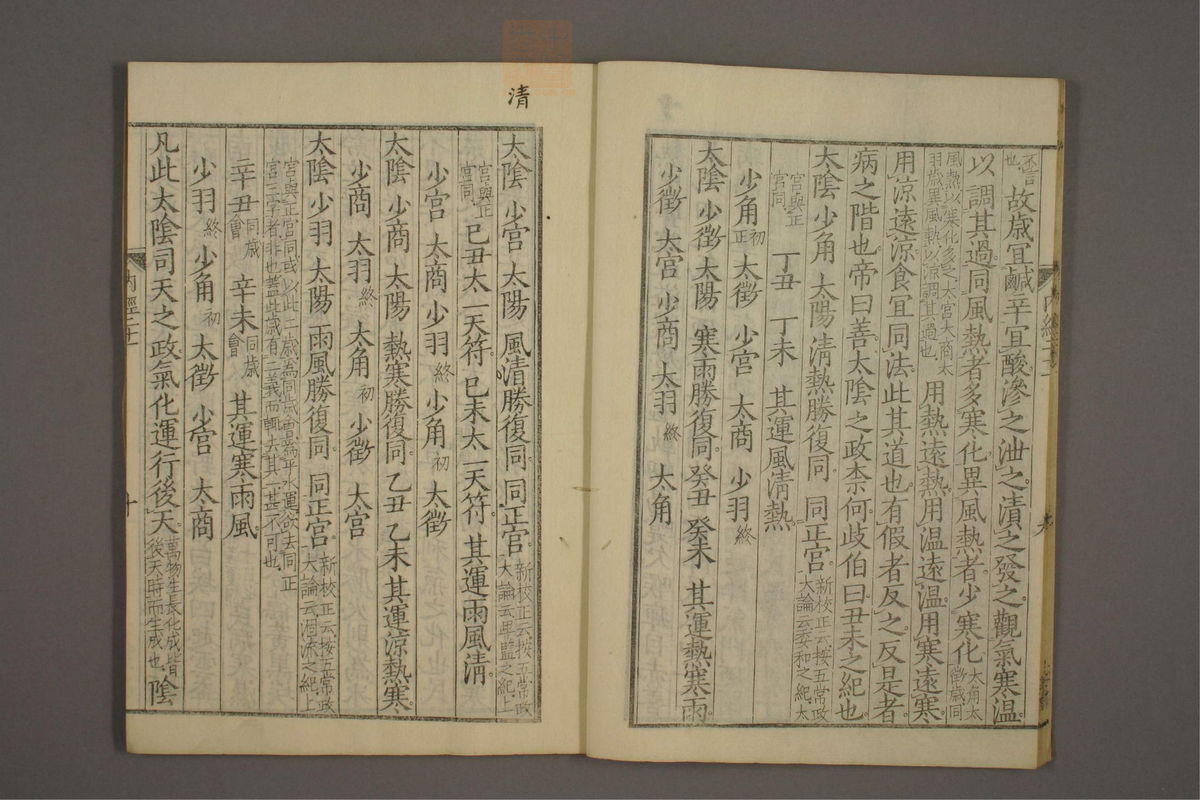 不言也故歲宜鹹辛宜酸滲之泄之漬之發之觀氣寒溫
以調其過同風熱者多寒化異風熱者少寒化太角太徵歲同
風熱以寒化多之太宮太商太羽歲異風熱以涼調其過也用熱遠熱用溫遠溫用寒遠寒
用涼遠涼食宜同法此其道也有假者反之反是者
病之階也帝曰善太陰之政柰何歧伯曰丑未之紀也
太陰少角太陽清熱勝復同同正宮新校正云按五常政大論云委和之紀太
宮與正宮同丁丑丁未其運風清熱
少角初正太徵少宮太商少羽終
太陰少徵太陽寒雨勝復同癸丑癸未其運熱寒雨
少徵太宮少商太羽終太角
清
太陰少宮太陽風清勝復同同正宮新校正云按五常政大論云卑監之紀上
宮與正宮同己丑太一天符己未太一天符其運雨風清
少宮太商少羽終少角初太徵
太陰少商太陽熱寒勝復同乙丑乙未其運涼熱寒
少商太羽終太角初少徵太宮
太陰少羽太陽雨風勝復同同正宮新校正云按五常政大論云涸流之紀上
宮與正宮同或以此二歲為同歲會為平水運欲去同正宮三字者非也蓋此歲有二義而輒去其一甚不可也
辛丑同歲會辛未同歲會其運寒雨風
少羽終少角初太徵少宮太商
凡此太陰司天之政氣化運行後天萬物生長化成皆後天時而生成也陰
內經二十一
十